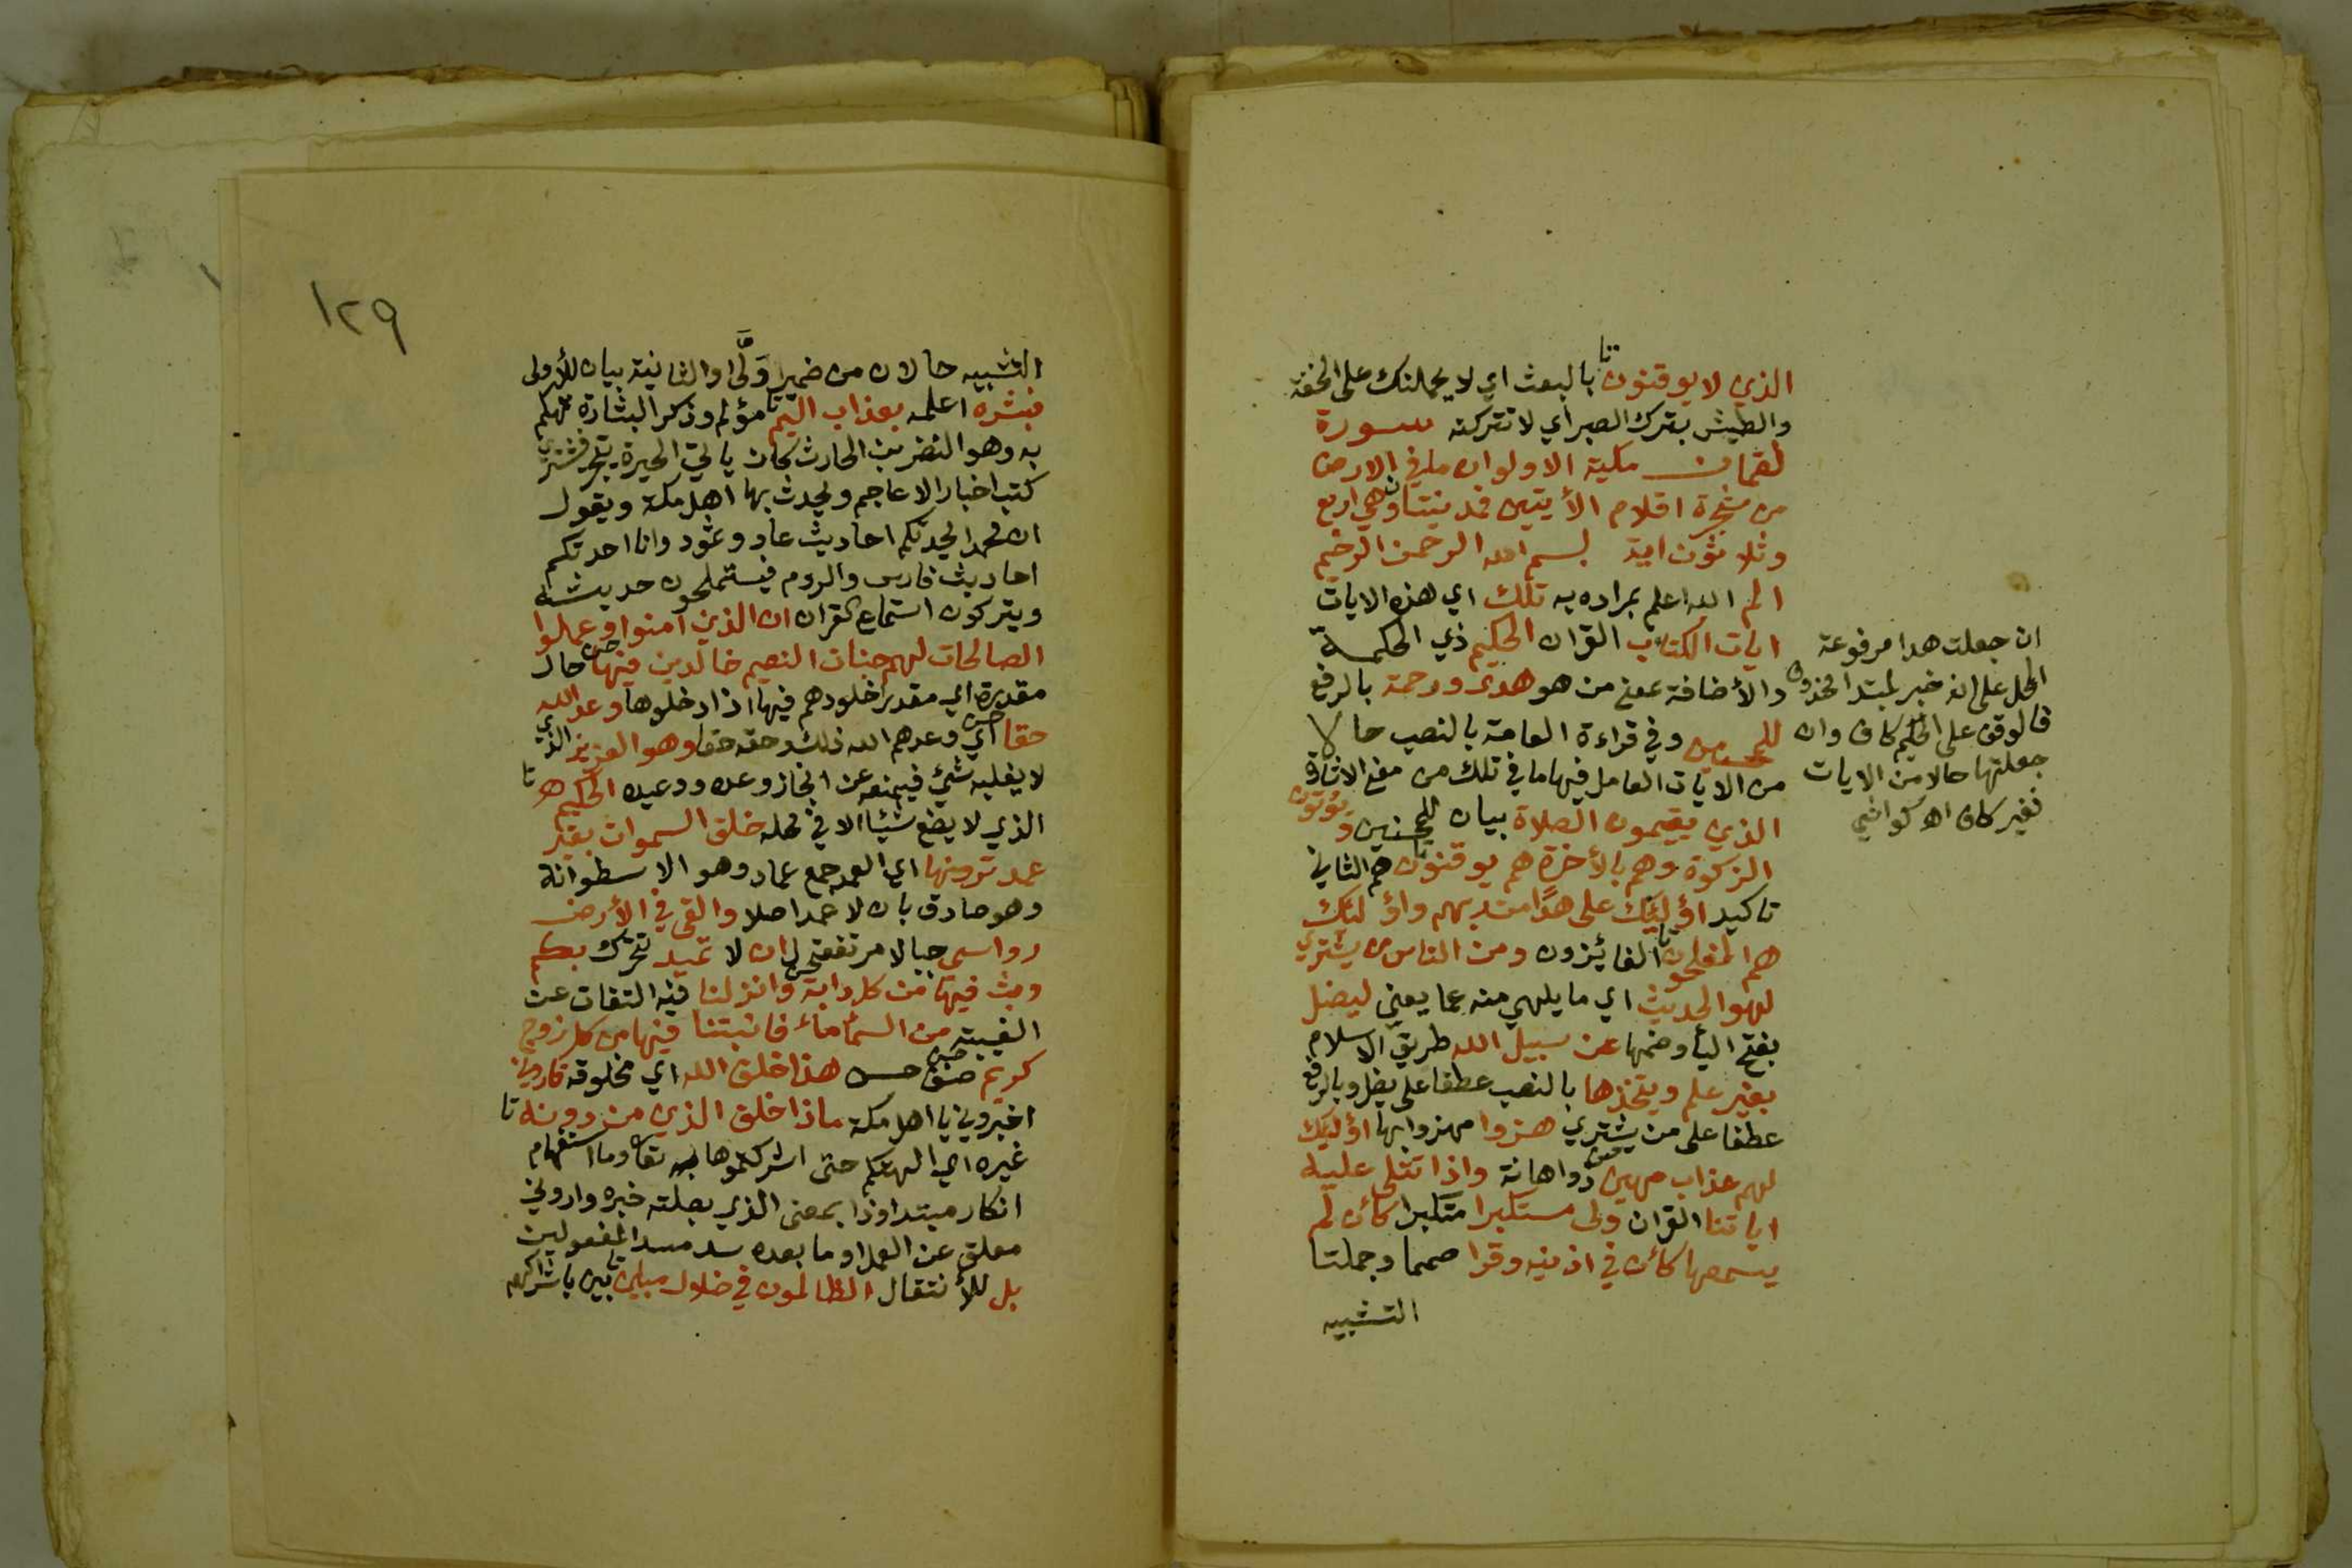 الذي لا يوقنون تا بالبعث اي لا يحملنك على الخفة
والطيش بترك الصبر اي لا تتركته سورة
لقمان مكية الا ولو ان ما في الارض
من شجرة اقلام الأيتين فمدينتان وهي اربع
وثلاثون اية بسم الله الرحمن الرحيم
الم الله اعلم بمراده به تلك اي هذه الايات
ايات الكتاب القران الحكيم ذي الحكمة
والأضافة بمعنى من هو هدى ورحمة بالرفع
للمحسنين وفي قراءة العامة بالنصب حالا
من الايات العامل فيها ما في تلك من معنى الاشارة
الذي يقيمون الصلاة بيان للمحسنين ويؤتون
الزكوة وهم بالأخرة هم يوقنون تا هم الثاني
تاكيد اؤليك على هدا من ربهم واؤلئك
هم المفلحون تا الفائزون ومن الناس من يشتري
لهو الحديث اي ما يلهي منه عما يعني ليضل
بفتح اليأ وضمها عن سبيل الله طريق الاسلام
بغير علم ويتخذها بالنصب عطفا على يضل وبالرفع
عطفا على من يشتري هزوا مهزوا بها اؤليك
لهم عذاب مهين ذوا هانة واذا تتلى عليه
اياتنا القران ولى مستكبرا متكبرا كأن لم
يسمعها كأن في اذنيه وقرا صمما وجملتا
التشبيه
ان جعلت هدا مرفوعة
المحل على انه خبر لمبتدا محذوف
فالوقف على الحكيم كاف وان
جعلتها حالا من الايات
فغير كاف اه كواشي
١٢٩
التشبيه حالان من ضمير وَلَّى او الثانية بيان للأولى
فبشره اعلمه بعذاب اليم تا مؤلم وذكر البشارة تهكم
به وهو النضر بن الحارث كان ياتي الحيرة يتجر فيشتري
كتب اخبار الاعاجم ويحدث بها اهل مكة ويقول
ان محمدا يحدثكم احاديث عاد وثمود وانا احدثكم
احاديث فارس والروم فيستملحون حديثه
ويتركون استماع القران ان الذين امنوا وعملوا
الصالحات لهم جنات النعيم خالدين فيها حال
مقدرة اي مقدرا خلودهم فيها اذا دخلوها وعد الله
حقا اي وعدهم الله ذلك وحقه حقا وهو العزيز الذي
لا يغلبه شيئ فيمنعه عن انجاز وعده ووعيده الحكيم تا
الذي لا يضع شيئا الا في محله خلق السموات بغير
عمد ترونها اي العمد جمع عماد وهو الاسطوانة
وهو صادق بان لا عمد اصلا والقى في الأرض
رواسي جبالا مرتفعة ل ان لا تميد تتحرك بكم
وبث فيها من كل دابة وانزلنا فيه التفات عن
الغيبة من السمأ مأء فانبتنا فيها من كل زوج
كريم صنف حسن هذا خلق الله اي مخلوقه فاروني
اخبروني يا اهل مكة ماذا خلق الذي من دونه تا
غيره اي الهتكم حتى اشركتموها به تعا وما استفهام
انكار مبتدا وذا بمعنى الذي بصلته خبره واروني
معلق عن العمل وما بعده سد مسد المفعولين
بل للأنتقال الظالمون في ضلال مبين تا بين باشراكهم